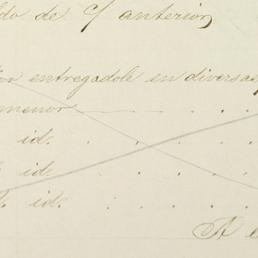 ldo de c/ anterior
or entregadole en diversas
menor
id.
id.
id.
A